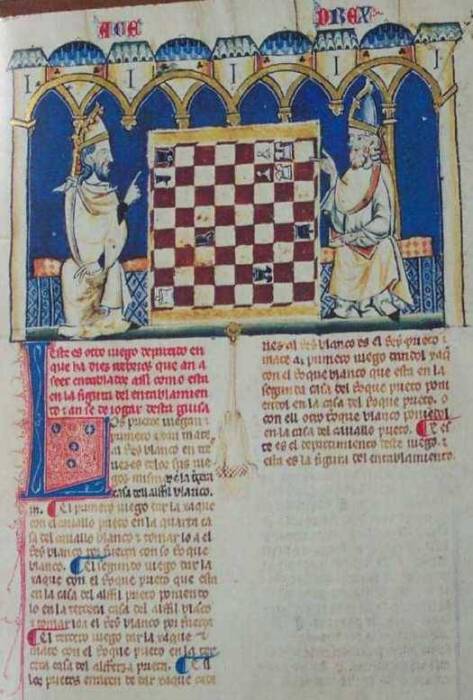 AÇE DREX
Este es otro iuego departido en
que ha dies trebeios que an a
seer entablados assi como esta
en la figura del entablamien
to t an se de iogar desta guisa
Os prietos iuegan
primero t dan mate
al Rey blanco en
de los sus iue
gos mismos
casa del alffil blanco.
El primero iuego dar la xaque
con el cauallo prieto en la quarta ca
sa del cauallo blanco t tomar lo a el
Rey blanco por fuerça con so roque
blanco. El segundo iuego dar la
xaque con el roque prieto que esta
en la casa del alffil prieto poniendo
lo en la tercera casa del alffil blanco
t tomar loa el Rey blanco por fuerça
El tercero iuego dar la xaque t
mate con el roque prieto en la ter
cera casa del alfferza prieta.
los prietos erraren de dar xaque cada
ues al Rey blanco es el Rey prieto t
mate al primero iuego dandol xaq
con el roque blanco que esta en la
segunda casa del roque prieto poni
endol en la casa del roque prieto. o
con ell otro roque blanco poniendol
en la casa del cauallo prieto. E es
te es el departimiento deste iuego. t
esta es la figura del entablamiento.